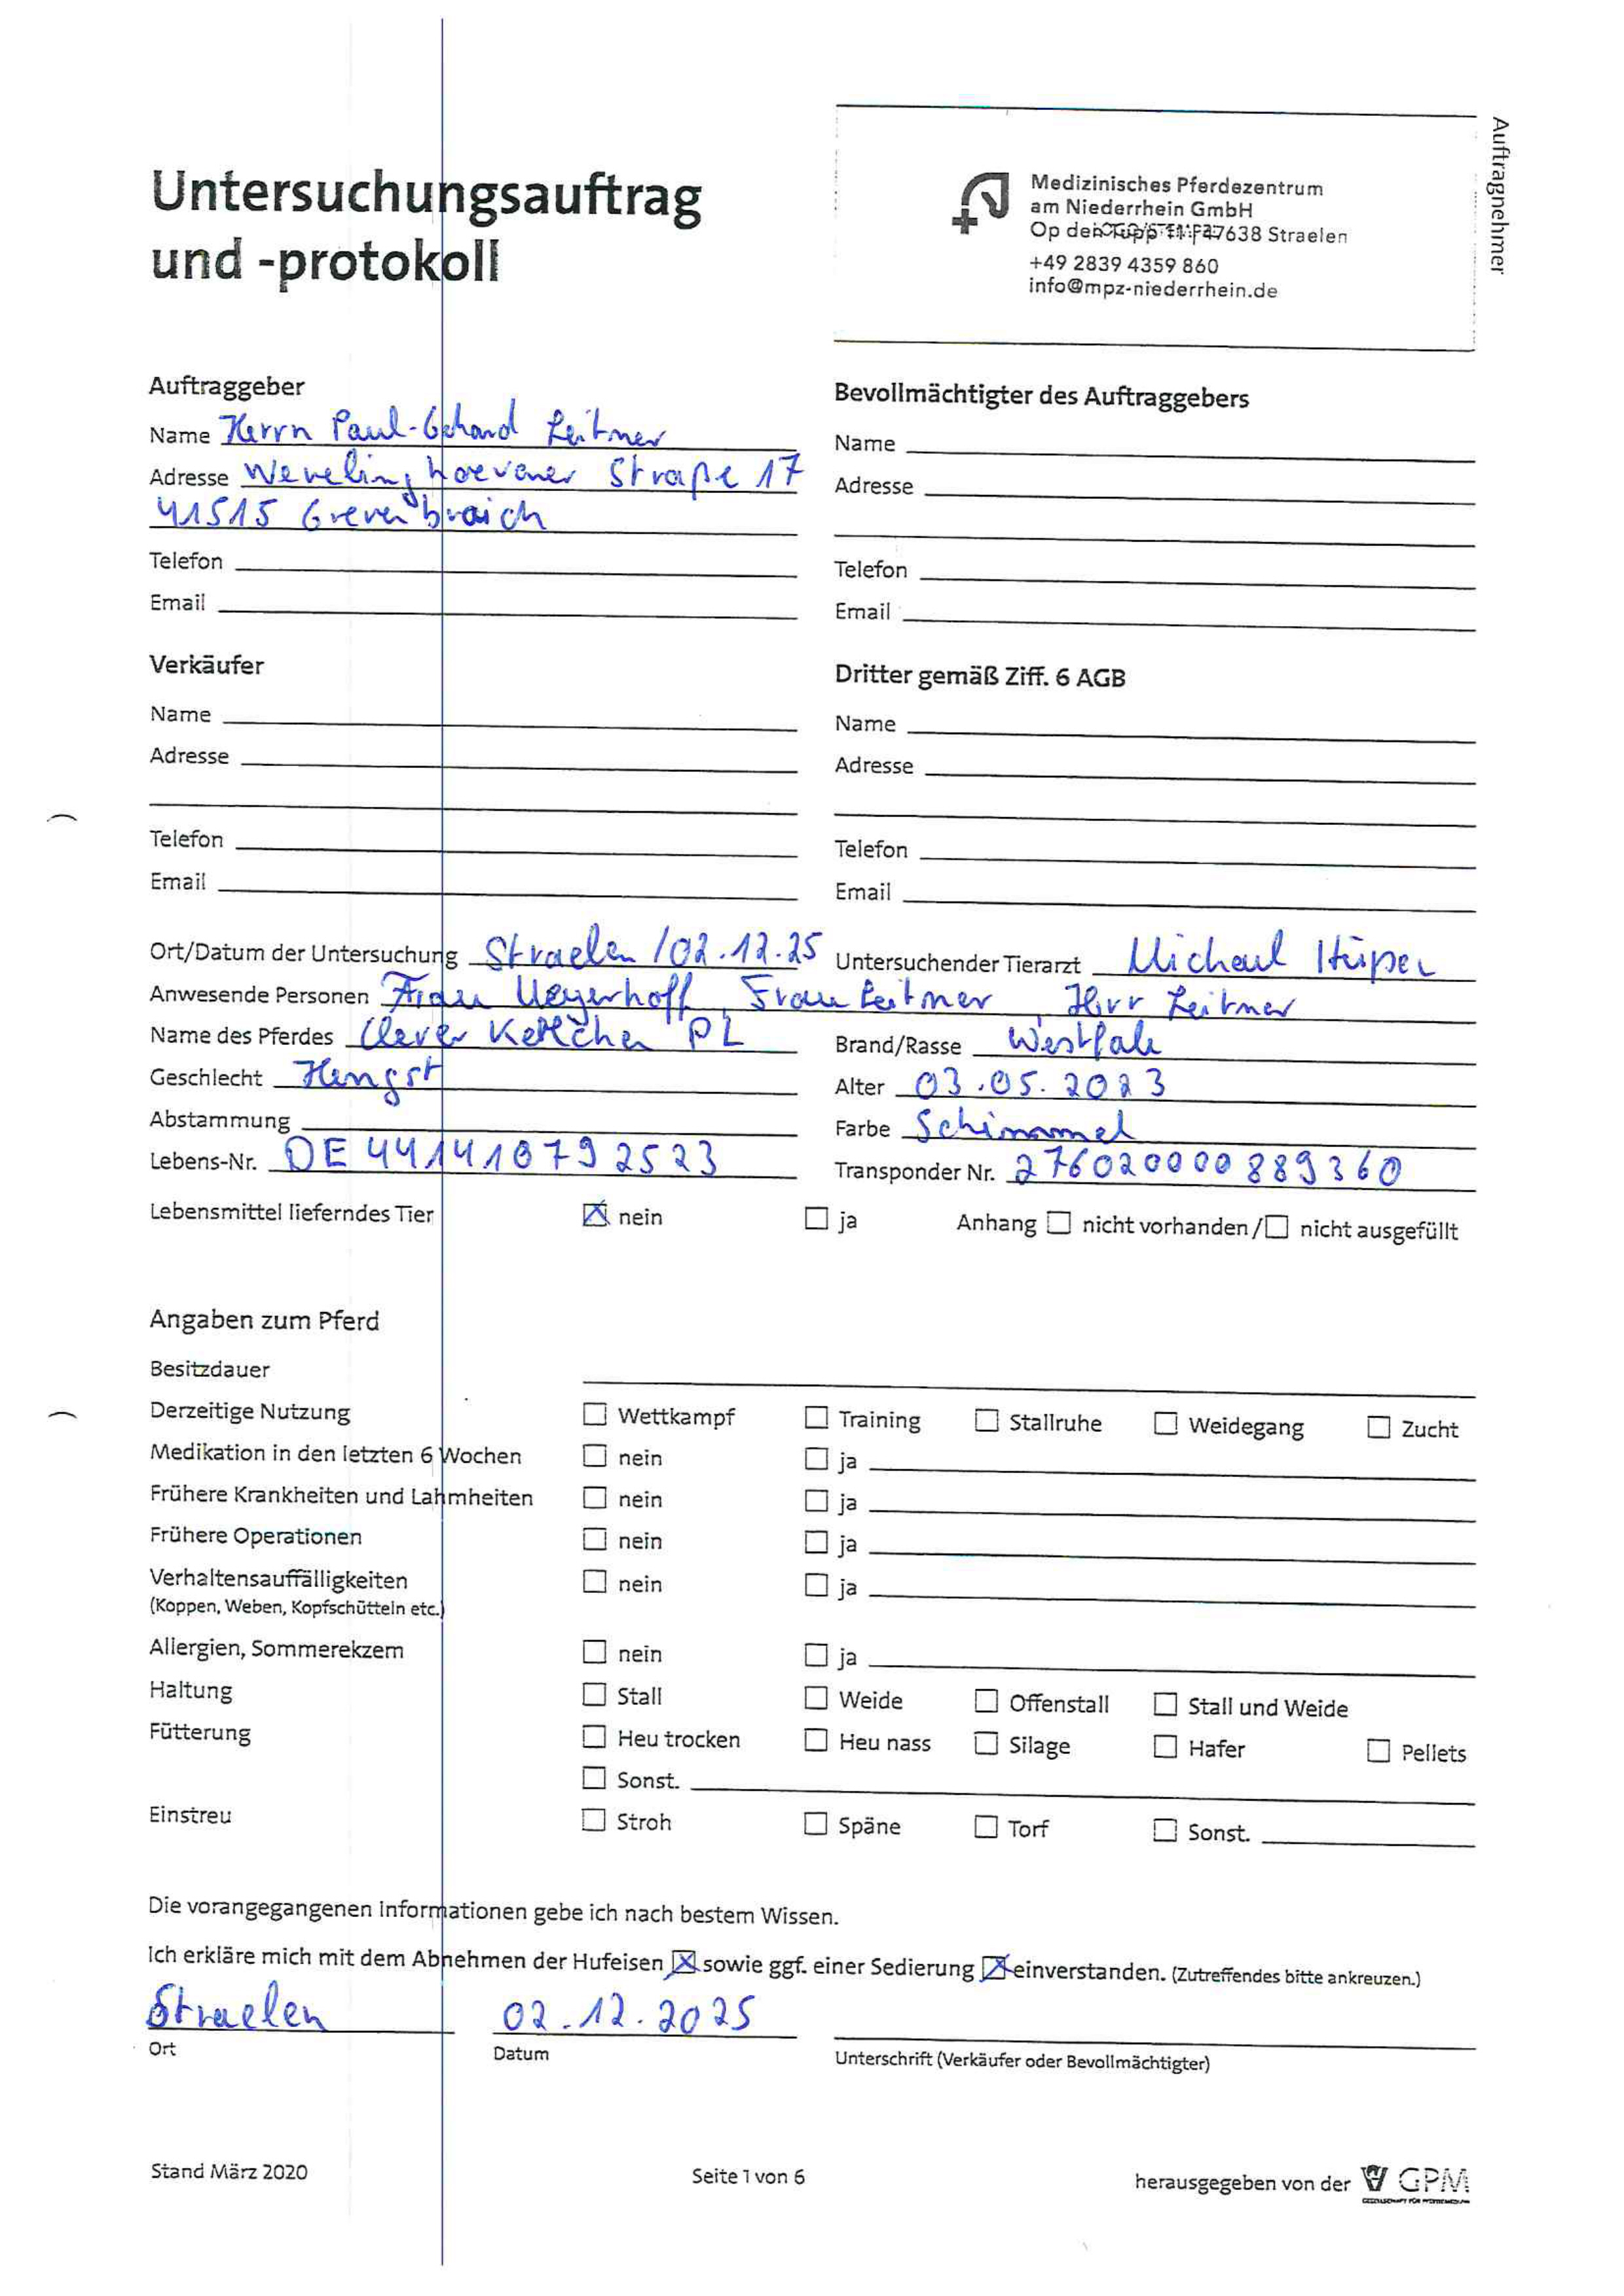 Auftragnehmer
Untersuchungsauftrag
und -protokoll
Medizinisches Pferdezentrum
am Niederrhein GmbH
Op den 47638 Straelen
+49 2839 4359 860
info@mpz-niederrhein.de
Auftraggeber
Name Herrn Paul-Gehard Leitner
Adresse Wevelinghoevener Straße 17
41515 Grevenbroich
Telefon
Email
Bevollmächtigter des Auftraggebers
Name
Adresse
Telefon
Email
Verkäufer
Name
Adresse
Telefon
Email
Dritter gemäß Ziff. 6 AGB
Name
Adresse
Telefon
Email
Ort/Datum der Untersuchung Straelen /02.12.25 Untersuchender Tierarzt Michael Hüper
Anwesende Personen Frau Meyerhoff, Frau Leitner, Herr Leitner
Name des Pferdes Clever PL Brand/Rasse Westfale
Geschlecht Hengst Alter 03.05.2023
Abstammung Farbe Schimmel
Lebens-Nr. DE 441410792523 Transponder Nr. 276020000889360
Lebensmittel lieferndes Tier ☒ nein ☐ ja Anhang ☐ nicht vorhanden / ☐ nicht ausgefüllt
Angaben zum Pferd
Besitzdauer
Derzeitige Nutzung ☐ Wettkampf ☐ Training ☐ Stallruhe ☐ Weidegang ☐ Zucht
Medikation in den letzten 6 Wochen ☐ nein ☐ ja
Frühere Krankheiten und Lahmheiten ☐ nein ☐ ja
Frühere Operationen ☐ nein ☐ ja
Verhaltensauffälligkeiten ☐ nein ☐ ja
(Koppen, Weben, Kopfschütteln etc.)
Allergien, Sommerekzem ☐ nein ☐ ja
Haltung ☐ Stall ☐ Weide ☐ Offenstall ☐ Stall und Weide
Fütterung ☐ Heu trocken ☐ Heu nass ☐ Silage ☐ Hafer ☐ Pellets
☐ Sonst.
Einstreu ☐ Stroh ☐ Späne ☐ Torf ☐ Sonst.
Die vorangegangenen Informationen gebe ich nach bestem Wissen.
Ich erkläre mich mit dem Abnehmen der Hufeisen ☒ sowie ggf. einer Sedierung ☒ einverstanden. (Zutreffendes bitte ankreuzen.)
Straelen 02.12.2025
Ort Datum Unterschrift (Verkäufer oder Bevollmächtigter)
Stand März 2020 Seite 1 von 6 herausgegeben von der GPM
GESELLSCHAFT FÜR PFERDEMEDIZIN